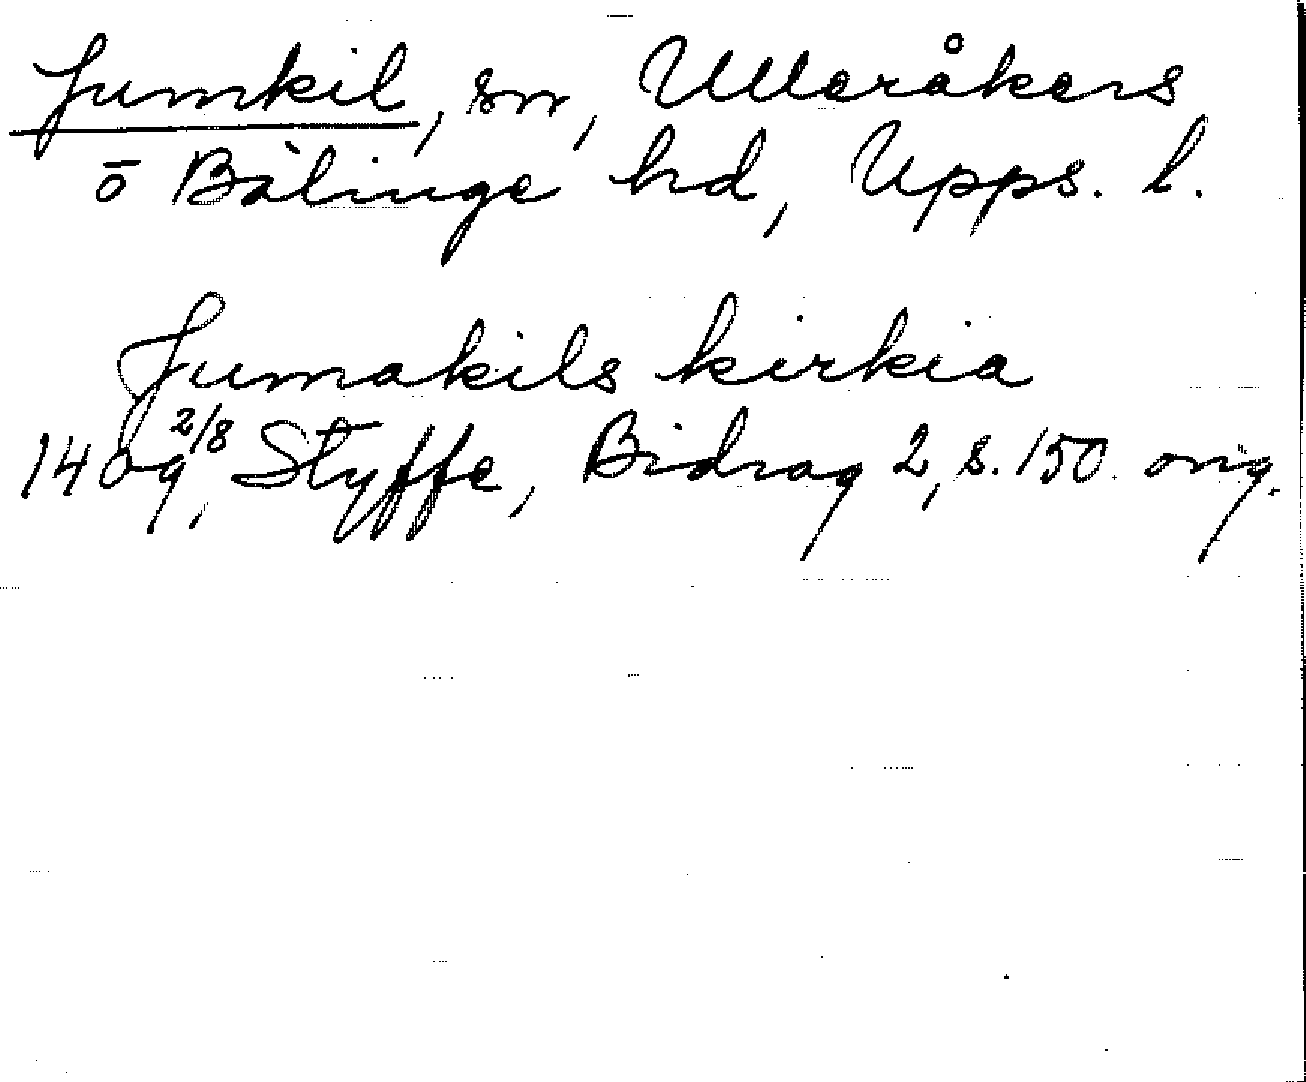 Jumkil, sn, Ulleråkers
ō Bälinge hd, Upps. l.
Jumakils kirkia
1409 2/8, Styffe, Bidrag 2, s. 150. orig.